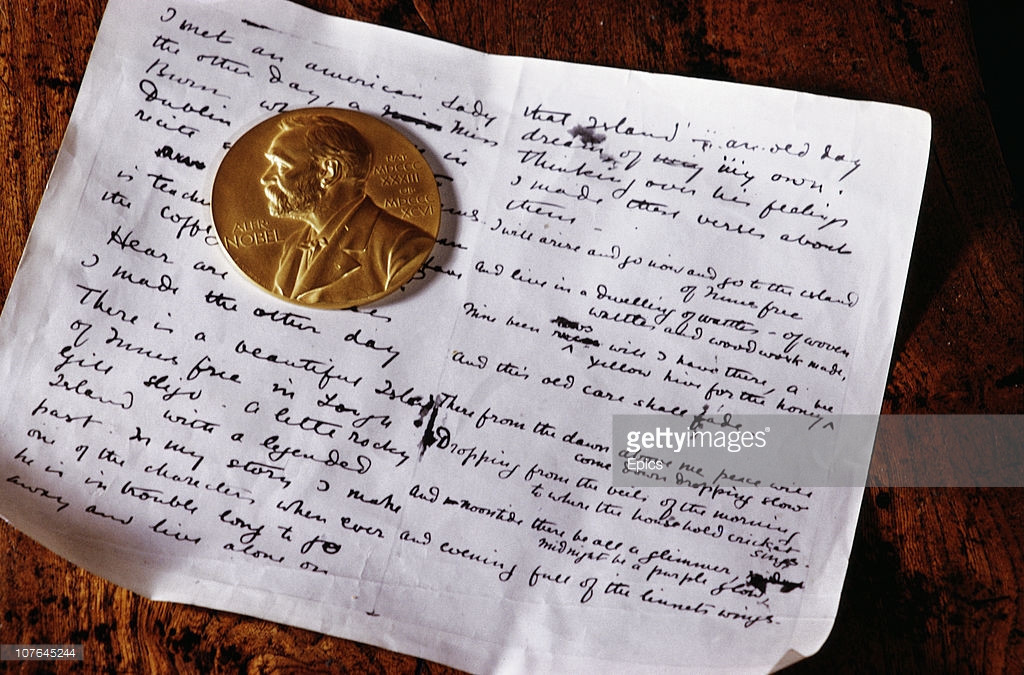 I met an american Lady
the other day, a Miss
Burn who in
Dublin
recite
is teachi
the coffe
Hear are
I made the other day
There is a beautiful Island
of Innis free in Lough
Gill sligo. A little rocky
Island with a legended
past. In my story I make
one of the characters when ever
he is in trouble long to go
away and live alone on
that Island – an old day
dream of my own.
Thinking over his feelings
I made these verses about
them –
I will arise and go now and go to the island
of Innis free
and live in a dwelling of wattles – of woven
wattles and wood work made,
Nine been rows will I have there, a
yellow hive for the honey
and this old care shall fade
There from the dawn above me peace will
come down dropping slow
Dropping from the veils of the morning
to where the household cricket
sings.
and noontide there be all a glimmer,
midnight be a purple glow,
and evening full of the linnets wings.
ALFR.
NOBEL
NAT.
MDCCC
XXXIII
OB.
MDCCC
XCVI
gettyimages®
Epics
107645244